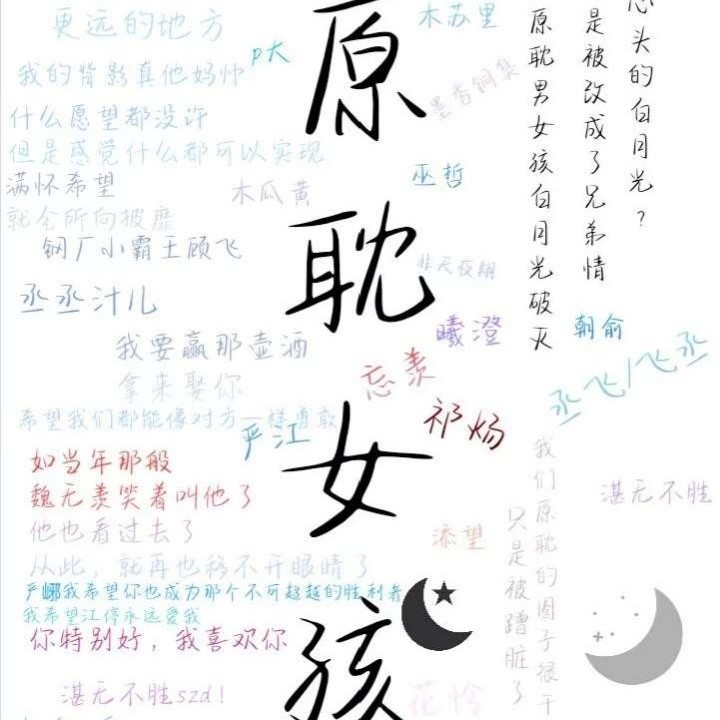 更远的地方
p大
木苏里
我的背影真他妈帅
墨香铜臭
什么愿望都没许
但是感觉什么都可以实现
满怀希望
就会所向披靡
木瓜黄
巫哲
钢厂小霸王顾飞
非天夜翔
丞丞汁儿
我要赢那壶酒
拿来娶你
曦澄
朝俞
忘羡
丞飞/飞丞
希望我们都能像对方一样勇敢
严江
祁炀
如当年那般
魏无羡笑着叫他了
他也看过去了
从此，就再也移不开眼睛了
添望
湛无不胜
严峫我希望你也成为那个不可超越的胜利者
我希望江停永远爱我
你特别好，我喜欢你
湛无不胜szd！
花怜
原耽女孩
心头的白月光？
是被改成了兄弟情
原耽男女孩白月光破灭
我们原耽的圈子很干
只是被蹭脏了